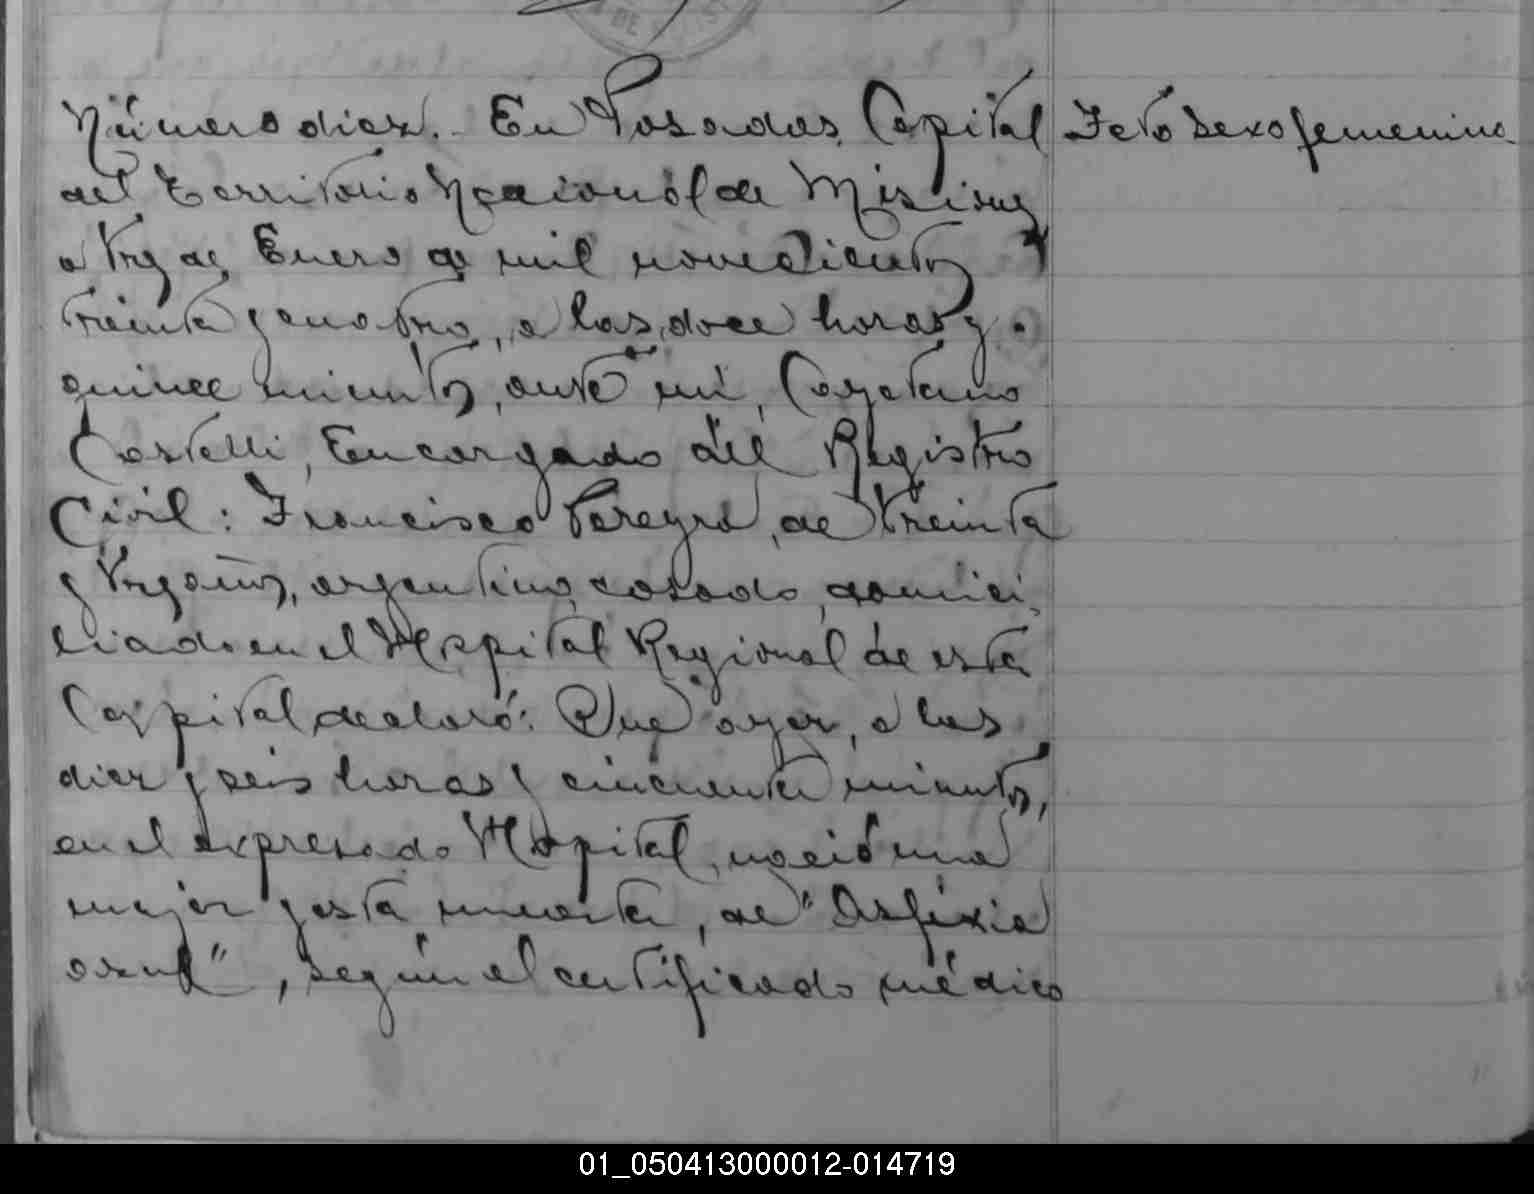 DE
Número diez. En Posadas, Capital
Feto sexo femenino
del Territorio Nacional de Misiones
a tres de Enero de mil novecientos
treinta y cuatro, a las doce horas y
quince minutos, ante mí, Cayetano
Castelli, Encargado del Registro
Civil: Francisco Pereyra, de treinta
y tres años, argentino, casado, domici-
liado en el Hospital Regional de esta
Capital declaró: Que ayer, a las
diez y seis horas y cincuenta minutos,
en el expresado Hospital, nació una
mujer y está muerta, de "Asfixia
azul", según el certificado médico
01_050413000012-014719